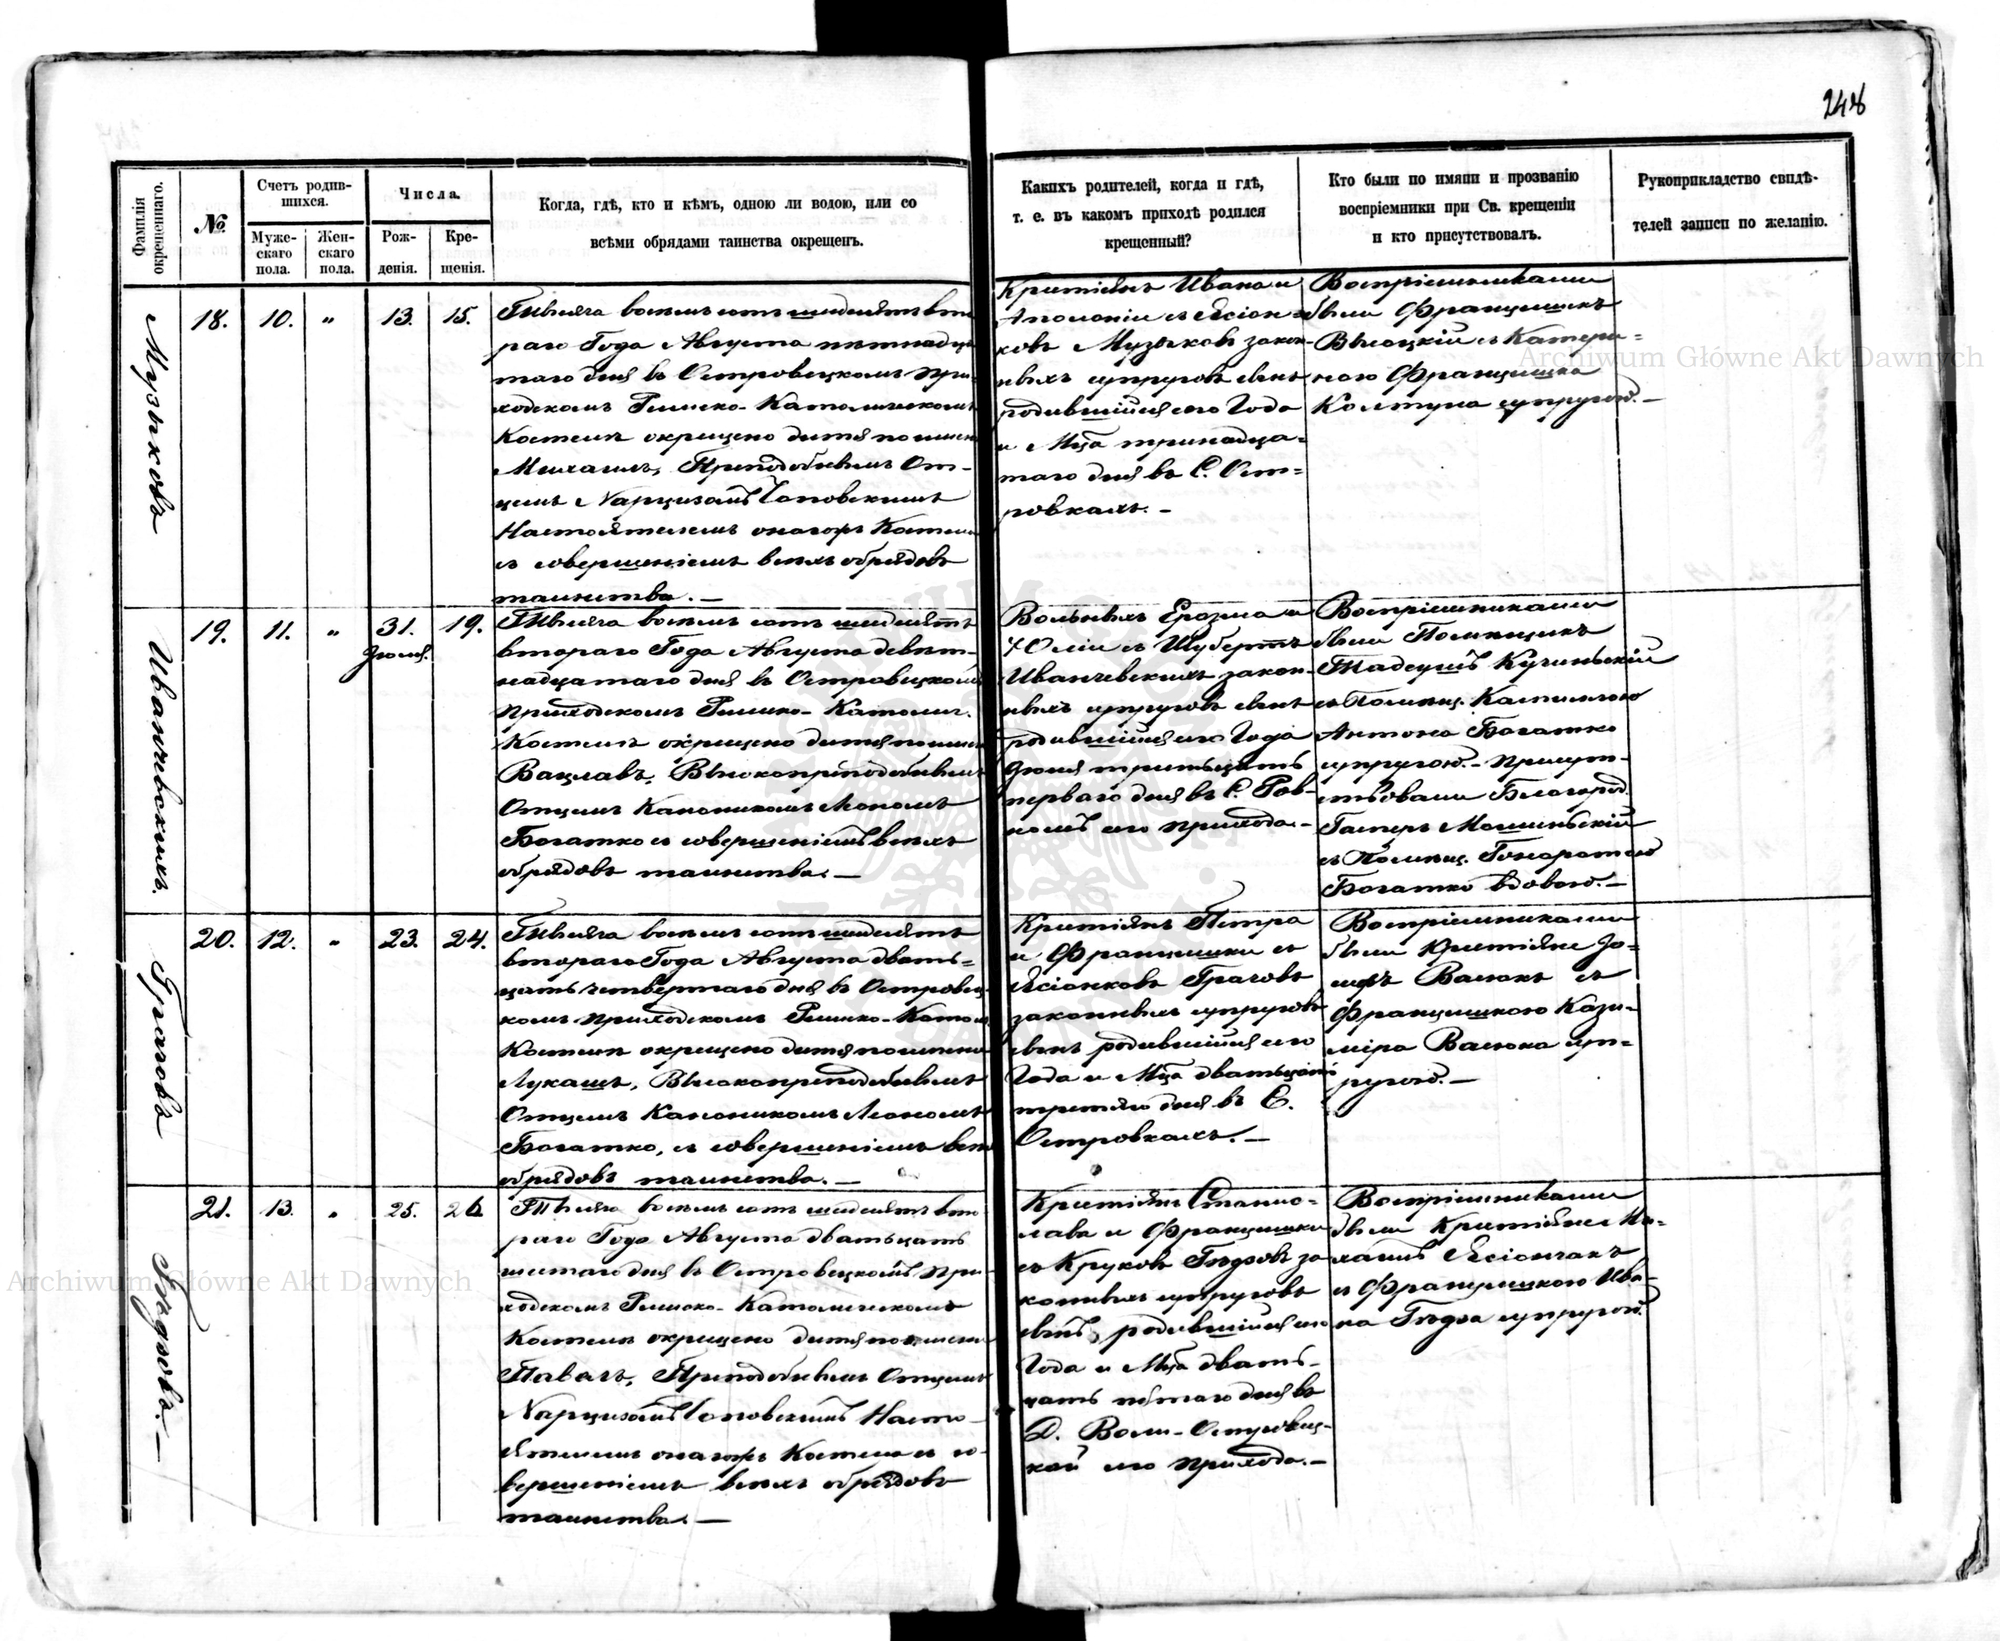 248
Фамилія окрещеннаго.
№
Счетъ родив-
шихся.
Муже-
скаго
пола.
Жен-
скаго
пола.
Числа.
Рож-
денія.
Кре-
щенія.
Когда, гдѣ, кто и кѣмъ, одною ли водою, или со
всѣми обрядами таинства окрещенъ.
Какихъ родителей, когда и гдѣ,
т. е. въ какомъ приходѣ родился
крещенный?
Кто были по имяни и прозванію
воспріемники при Св. крещеніи
и кто присутствовалъ.
Рукоприкладство свидѣ-
телей записи по желанію.
Музыковъ
18. 10. „ 13. 15.
Тысяча восемь сотъ шидисятъ вто
раго Года Августа пятнадца
таго дня въ Островецкомъ при-
ходскомъ Римско-Католическомъ
Костелѣ окрещено дитя по имени
Михаилъ, Преподобнымъ От-
цемъ Нарцизомъ
Настоятелемъ онагожъ Костела
съ совершеніемъ всѣхъ обрядовъ
таинства. —
Крестіянъ Ивана и
Аполоніи съ Ясіон-
ковъ Музыковъ закон-
ныхъ супруговъ сынъ
родившійся сего Года
и Мца тринадца-
таго дня въ С. Ост-
ровкахъ. —
Воспріемниками
были Францишекъ
Высоцкій съ Катери-
ною Францишка
Колтуна супругою. —
Иванчевскихъ.
19. 11. „ 31. Іюля. 19.
Тысяча восемь сотъ шидисятъ
втораго Года Августа девят-
надцатаго дня въ Островецкомъ
приходскомъ Римско-Католич.
Костелѣ окрещено дитя по имени
Вацлавъ, Высокопреподобнымъ
Отцемъ Каноникомъ Леономъ
Богатко съ совершеніемъ всѣхъ
обрядовъ таинства. —
Вольныхъ Еразма и
Юліи съ Шубертъ
Иванчевскихъ закон-
ныхъ супруговъ сынъ
родившійся сего Года
Іюля тритьцать
перваго дня въ С. Ров-
комъ сего прихода. —
Воспріемниками
были Помѣщикъ
Тадеушъ Кучинскій
съ Помѣщ. Камилою
Антона Богатко
супругою. — присут-
ствовали Благород.
Гасперъ
съ Помѣщ. Гоноратою
Богатко вдовою. —
Грачовъ
20. 12. „ 23. 24.
Тысяча восемь сотъ шидисятъ
втораго Года Августа двать-
цать четвертаго дня въ Островец
комъ приходскомъ Римско-Катол
Костелѣ окрещено дитя по имени
Лукашъ, Высокопреподобнымъ
Отцемъ Каноникомъ Леономъ
Богатко, съ совершеніемъ всѣхъ
обрядовъ таинства. —
Крестіянъ Петра
и Францишки съ
Ясіонковъ Грачовъ
законныхъ супруговъ
сынъ родившійся сего
Года и Мца дватьцать
третяго дня въ С.
Островкахъ. —
Воспріемниками
были Крестіяне Іо-
сифъ Васюкъ съ
Францишкою Кази-
міра Васюка суп-
ругою. —
Гъдзовъ. —
21. 13. „ 25. 26
Тысяча восемь сотъ шидисятъ вто
раго Года Августа дватьцать
шестаго дня въ Островецкомъ при
ходскомъ Римско-Католическомъ
Костелѣ окрещено дитя по имени
Павелъ, Преподобнымъ Отцемъ
Нарцизомъ Насто-
ятелемъ онагожъ Костела съ со-
вершеніемъ всѣхъ обрядовъ
таинства. —
Крестіянъ Станис-
лава и Францишки
съ Круковъ Гъдзовъ за
конныхъ супруговъ
сынъ, родившійся сего
Года и Мца двать-
цать пятаго дня въ
Д. Воли-Островец-
кой сего прихода. —
Воспріемниками
были Крестіяне Ми-
халъ Ясіончакъ
съ Францишкою Ива-
на Гъдза супругой.
Archiwum Główne Akt Dawnych
Archiwum Główne Akt Dawnych